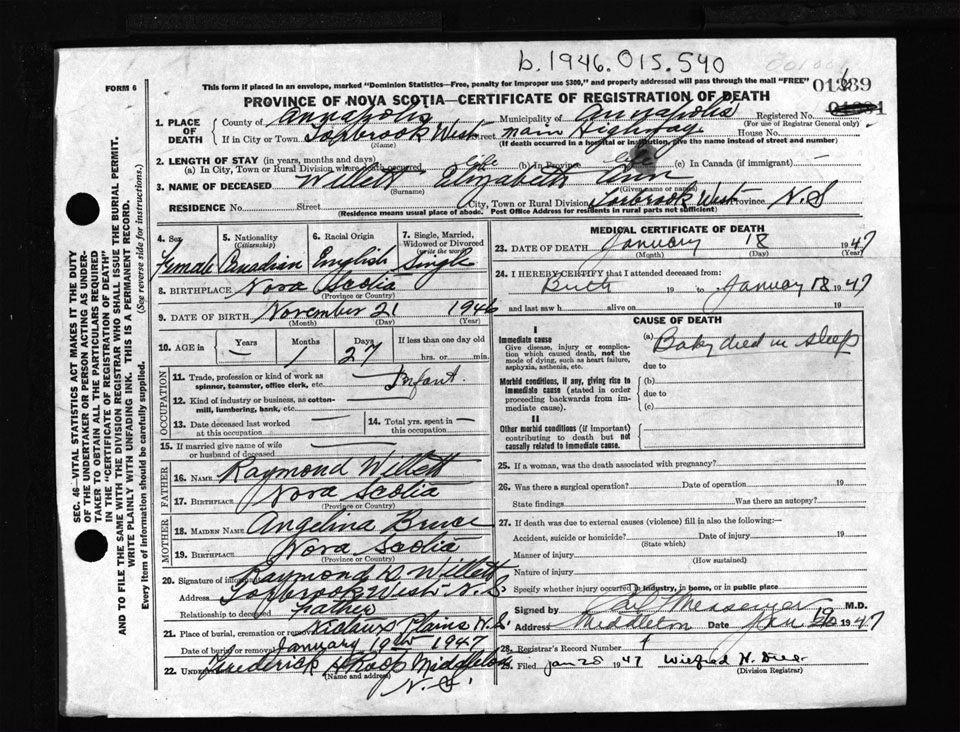 b.1946.015.540
FORM 6
This form if placed in an envelope, marked "Dominion Statistics—Free, penalty for improper use $300," and properly addressed will pass through the mail "FREE"
PROVINCE OF NOVA SCOTIA—CERTIFICATE OF REGISTRATION OF DEATH
1. PLACE OF DEATH
County of Annapolis Municipality of Annapolis Registered No.
(For use of Registrar General only)
If in City or Town Torbrook West Street Main Highway House No.
(Name) (If death occurred in a hospital or institution, give the name instead of street and number)
2. LENGTH OF STAY (in years, months and days)
(a) In City, Town or Rural Division where death occurred Life (b) In Province life (c) In Canada (if immigrant) —
3. NAME OF DECEASED Willett Elizabeth Ann
(Surname) (Given name or names)
RESIDENCE No. Street City, Town or Rural Division Torbrook West Province N.S
(Residence means usual place of abode. Post Office Address for residents in rural parts not sufficient)
4. Sex Female
5. Nationality (Citizenship) Canadian
6. Racial Origin English
7. Single, Married, Widowed or Divorced (write the word) Single
8. BIRTHPLACE Nova Scotia
(Province or Country)
9. DATE OF BIRTH November 21 1946
(Month) (Day) (Year)
10. AGE in Years — Months 1 Days 27 If less than one day old hrs. or min.
OCCUPATION
11. Trade, profession or kind of work as spinner, teamster, office clerk, etc. Infant.
12. Kind of industry or business, as cotton-mill, lumbering, bank, etc. —
13. Date deceased last worked at this occupation —
14. Total yrs. spent in this occupation —
15. If married give name of wife or husband of deceased —
FATHER
16. NAME Raymond Willett
17. BIRTHPLACE Nova Scotia
MOTHER
18. MAIDEN NAME Angelina Bruce
19. BIRTHPLACE Nova Scotia
(Province or Country)
20. Signature of informant Raymond K Willett
Address Torbrook West N.S
Relationship to deceased Father
21. Place of burial, cremation or removal Nictaux Plains N.S.
Date of burial or removal January 19th 1947
22. UNDERTAKER Frederick Roop Middleton
(Name and address)
N.S.
MEDICAL CERTIFICATE OF DEATH
23. DATE OF DEATH January 18 1947
(Month) (Day) (Year)
24. I HEREBY CERTIFY that I attended deceased from:
Birth 19 to January 18 1947
and last saw h alive on 19
CAUSE OF DEATH
I
Immediate cause
Give disease, injury or complication which caused death, not the mode of dying, such as heart failure, asphyxia, asthenia, etc.
(a) Baby died in sleep
due to
Morbid conditions, if any, giving rise to immediate cause (stated in order proceeding backwards from immediate cause).
(b)
due to
(c)
II
Other morbid conditions (if important) contributing to death but not causally related to immediate cause.
25. If a woman, was the death associated with pregnancy?
26. Was there a surgical operation? Date of operation 19
State findings Was there an autopsy?
27. If death was due to external causes (violence) fill in also the following:—
Accident, suicide or homicide? Date of injury 19
(State which)
Manner of injury
(How sustained)
Nature of injury
Specify whether injury occurred in industry, in home, or in public place
Signed by Messenger M.D.
Address Middleton Date Jan 1947
28. Registrar's Record Number 1
29. Filed Jan 20 1947 Wilfred H.
(Division Registrar)
SEC. 46—VITAL STATISTICS ACT MAKES IT THE DUTY
OF THE UNDERTAKER OR PERSON ACTING AS UNDER-
TAKER TO OBTAIN ALL THE PARTICULARS REQUIRED
IN THE "CERTIFICATE OF REGISTRATION OF DEATH"
AND TO FILE THE SAME WITH THE DIVISION REGISTRAR WHO SHALL ISSUE THE BURIAL PERMIT.
WRITE PLAINLY WITH UNFADING INK. THIS IS A PERMANENT RECORD.
Every item of information should be carefully supplied. (See reverse side for instructions.)